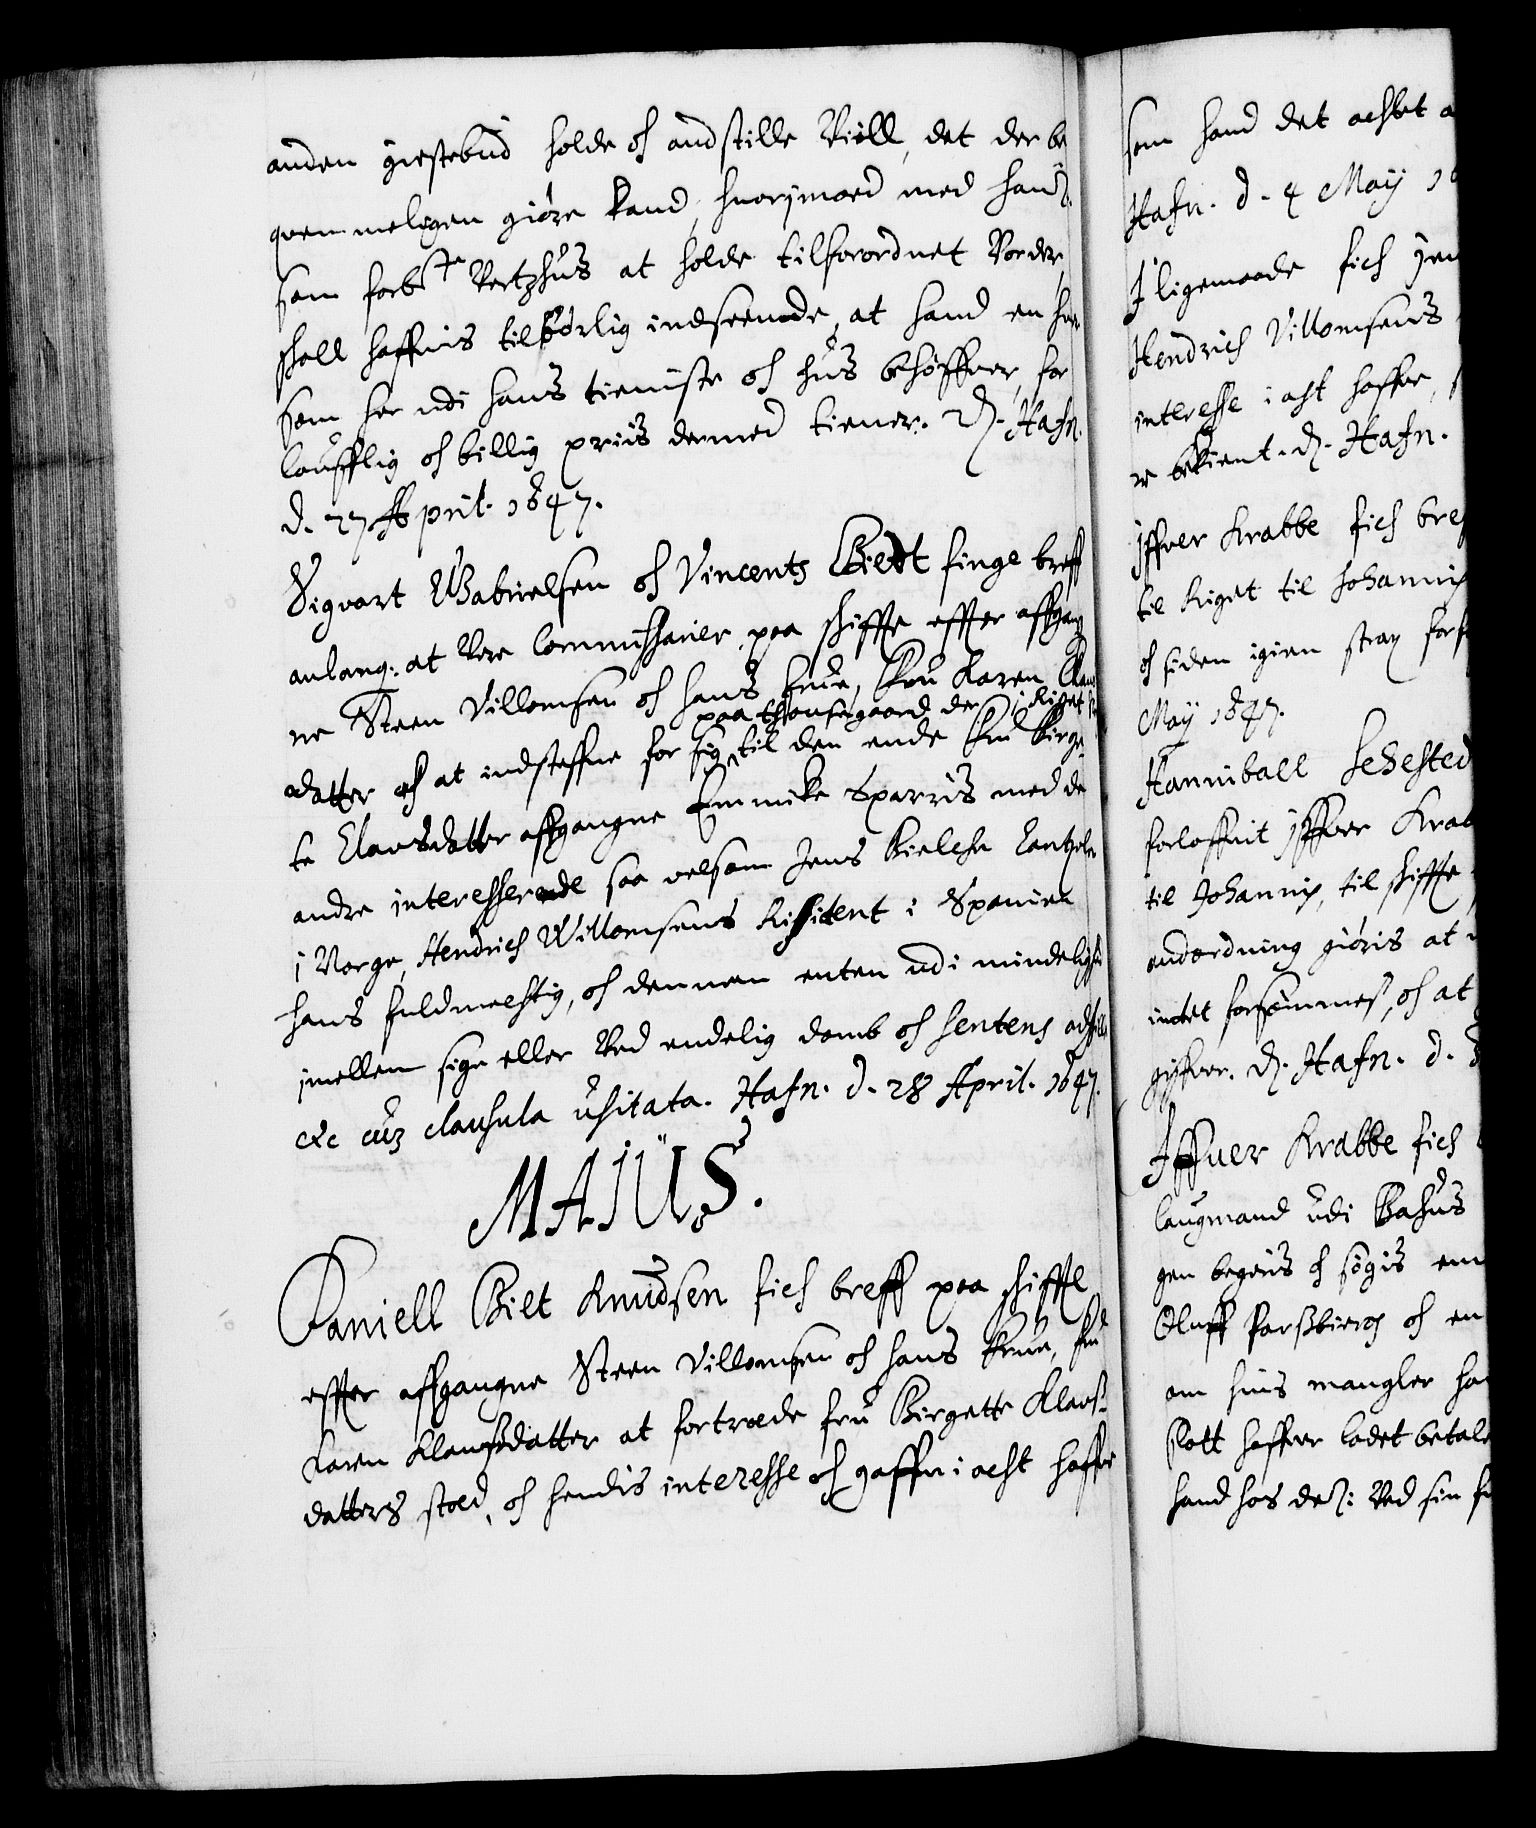 anden giestebud holde och andstille Viill, det der be
quemmeligen giöre kand, huorimoed med hans
som forbte Vertzhus at holde tilforordnet Vorder,
shall haffuis tilbørlig indseende, at hand en huer
som her udi hans tieniste och hus behøffuer, for
louflig och billig priis dermed tiener. Hafn.
d. 27 April. 1647.
Sigvart Gabrielsen och Vincents Bildt finge breff
anlang: at Vere Commissharier, paa shiffte effter affgang
ne Steen Villomsen och hans frue, Fru Karen Claus
datter och at indsteffne for sig til den ende Fru Birge
paa Thonsegaard der i Riget
te Clausdatter affgangne Emmike Sparris med de
andre interesserede saa velsom Jens Bielche Cantzeler
i Norge, Hendrich Willomsens Resident i Spanien
hans fuldmechtig, och dennem enten udi mindelighed
imellem sige eller Ved endelig domb och sentens adskille
etc cum clausula usitata. Hafn. d. 28 April. 1647.
MAJUS.
Daniell Bilt Knudsen fich breff paa shiffte
effter affgangne Steen Villomsen och hans frue, fru
Karen Klausdatter at fortræde fru Birgette Klaus
datters sted, och hendis interesse och gaffn i acht haffue
som hand det achtet
Hafn. d. 4 May
I ligemaade fich
Hendrich Villomsens
interesse i acht haffue,
er bekient. Hafn.
Iffuer Krabbe fich breff
til Riget til Johannis
och siden igien strax
May 1647.
Hanniball Sehested
forloffuit Iffuer Krabbe
til Johannis, til shiffte
andordning giöris at
intet forsömmes, och at
giffuer. Hafn. d.
Iffuer Krabbe fich
laugmand udi Bahus
gen begeris och søgis
Oluff Parsbierg och en
om huis mangler
slott haffuer ladet betale
hand hos des: Ved sin